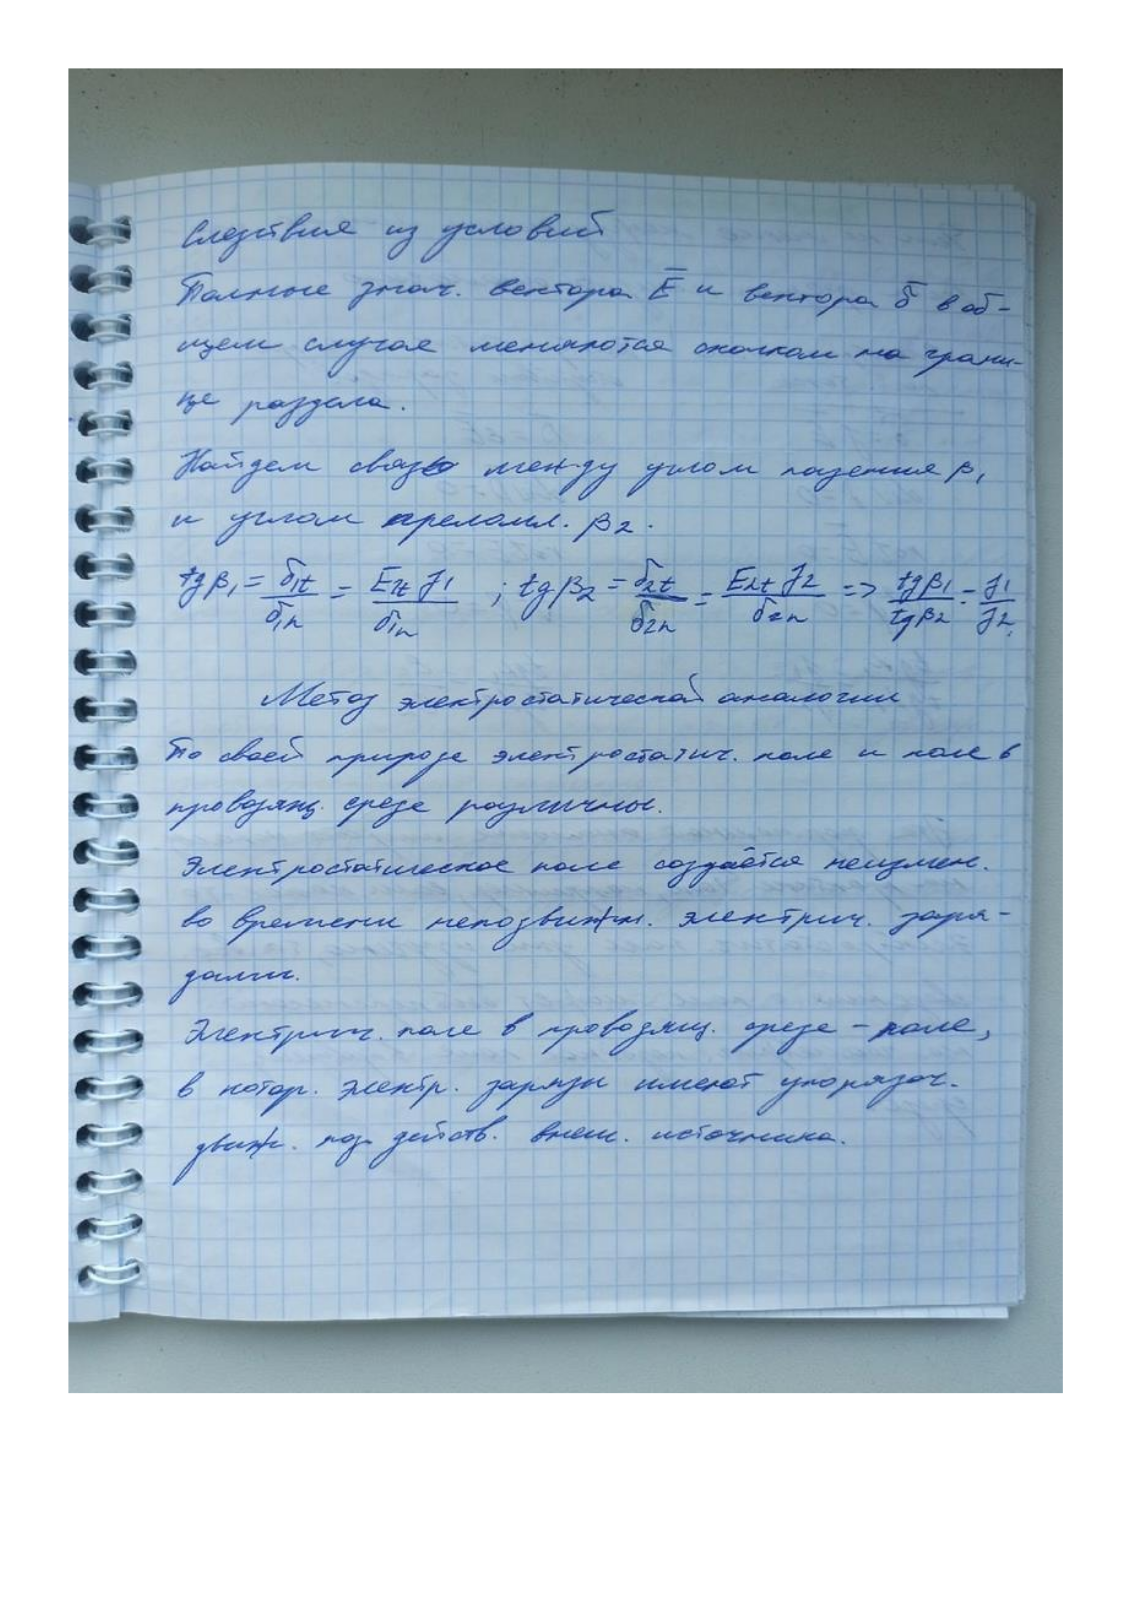 Следствия из условий
Полные знач. вектора Ē и вектора δ̄ в об-
щем случае меняются скачком на грани-
це раздела.
Найдем связь между углом падения β₁
и углом преломл. β₂.
tgβ₁ = δ₁t/δ₁n = E₁t γ₁/δ₁n ; tgβ₂ = δ₂t/δ₂n = E₂t γ₂/δ₂n => tgβ₁/tgβ₂ = γ₁/γ₂
Метод электростатической аналогии
По своей природе электростатич. поле и поле в
проводящ. среде различны.
Электростатическое поле создаётся неизмен.
во времени неподвижн. электрич. заря-
дами.
Электрич. поле в проводящ. среде – поле,
в котор. электр. заряды имеют упорядоч.
движ. под действ. внеш. источника.